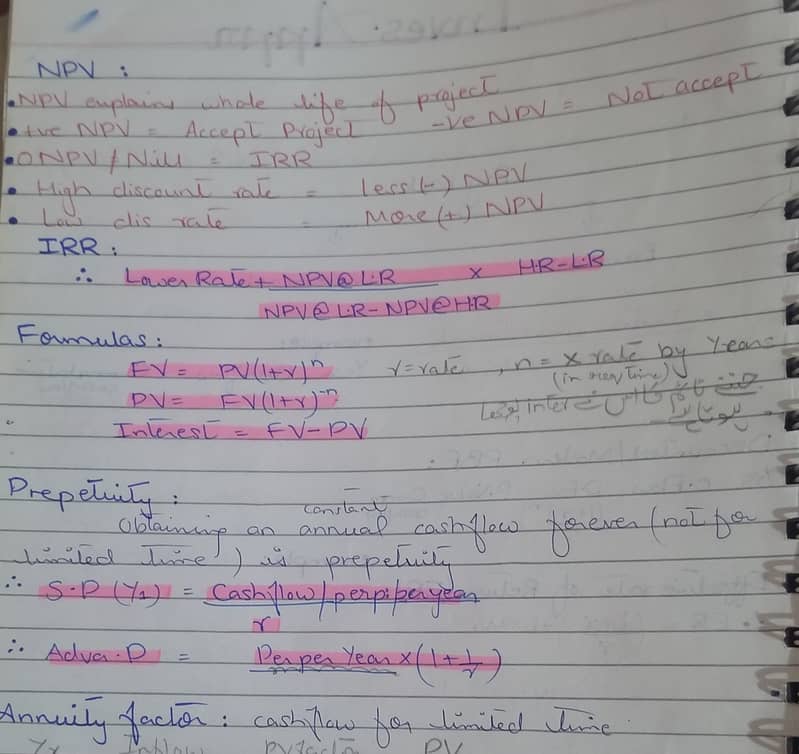 NPV :
• NPV explains whole life of project
• +ve NPV = Accept Project -ve NPV = Not accept
• 0 NPV / Nill = IRR
• High discount rate = Less (-) NPV
• Low dis rate = More (+) NPV
IRR :
∴ Lower Rate + NPV@L.R x HR-L.R
NPV@LR-NPV@HR
Formulas :
FV = PV(1+r)^n r=rate , n = x rate by Years
PV = FV(1+r)^-n (in
Interest = FV-PV
Prepetuity :
constant
Obtaining an annual cashflow forever (not for
limited time) is prepetuity
∴ S.P (Y1) = Cashflow/perp:peryear
r
∴ Adva.P = Per per Year x (1+1/r)
Annuity factor : cashflow for limited time
Yx Inflow PV factor PV